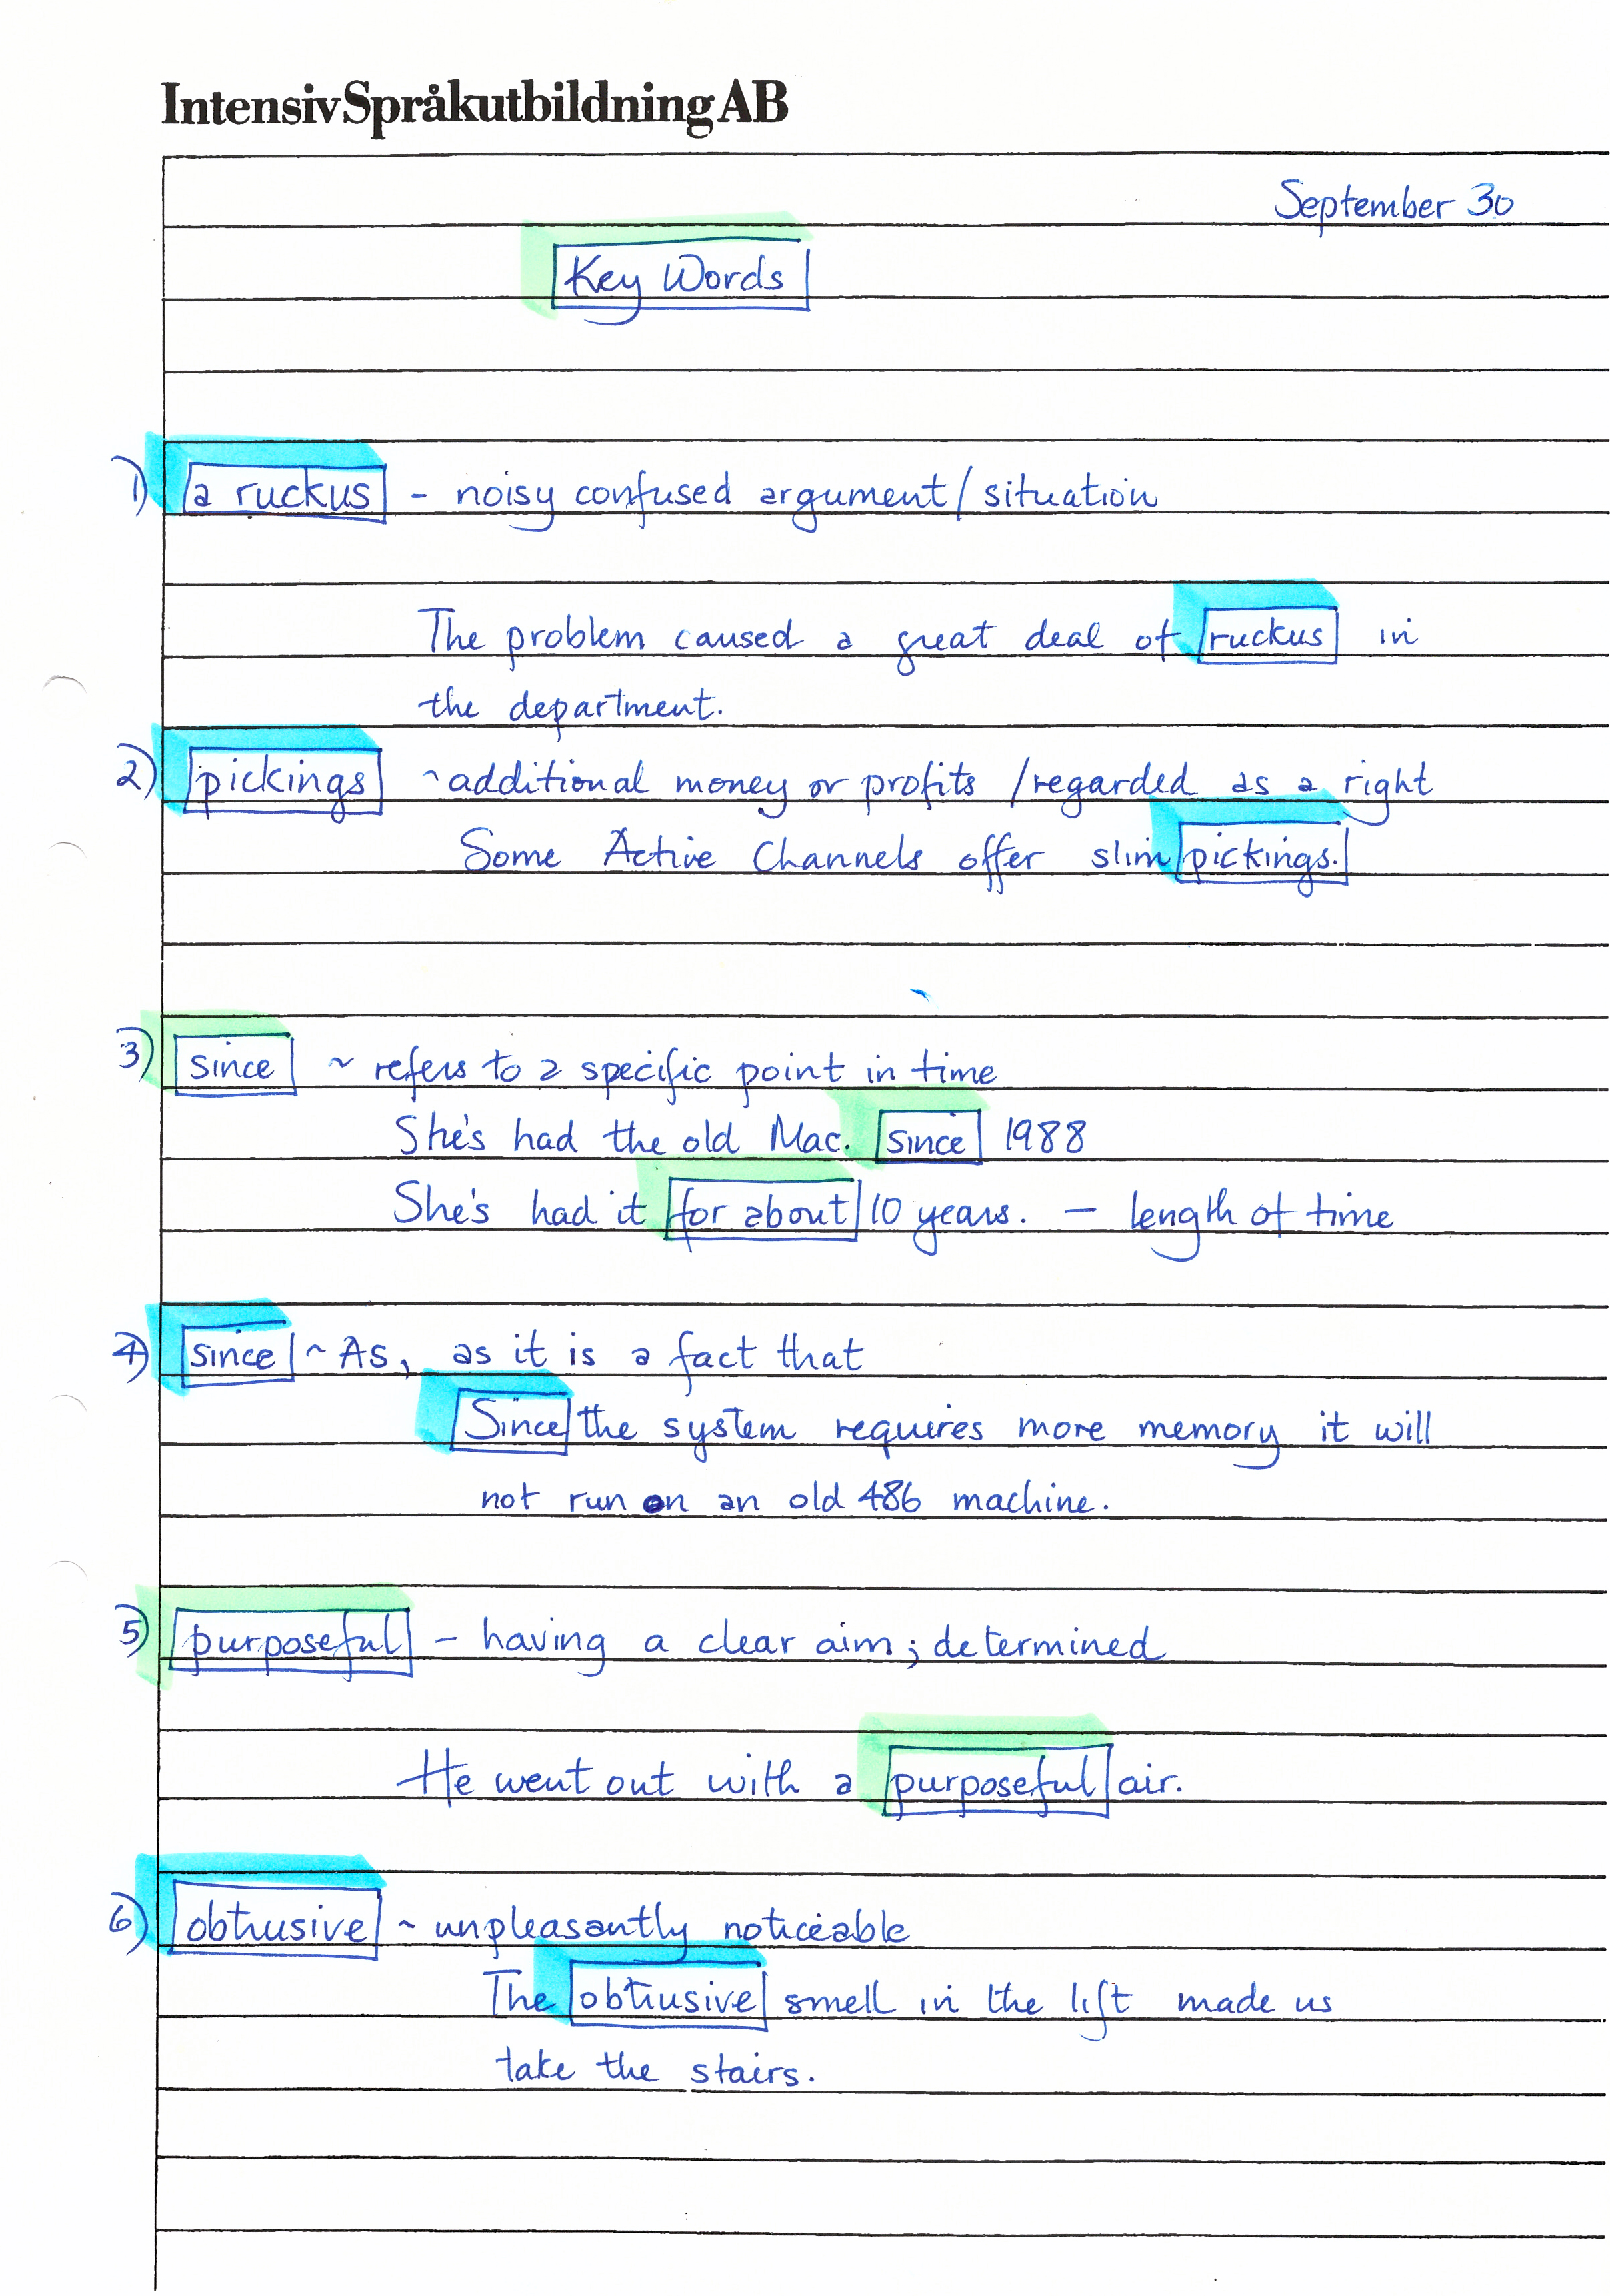 IntensivSpråkutbildning AB
September 30
Key Words
1) a ruckus - noisy confused argument/situation
The problem caused a great deal of ruckus in
the department.
2) pickings ~ additional money or profits /regarded as a right
Some Active Channels offer slim pickings.
3) since ~ refers to a specific point in time
She's had the old Mac. since 1988
She's had it for about 10 years. - length of time
4) since ~ As, as it is a fact that
Since the system requires more memory it will
not run on an old 486 machine.
5) purposeful - having a clear aim; determined
He went out with a purposeful air.
6) obtrusive ~ unpleasantly noticeable
The obtrusive smell in the lift made us
take the stairs.